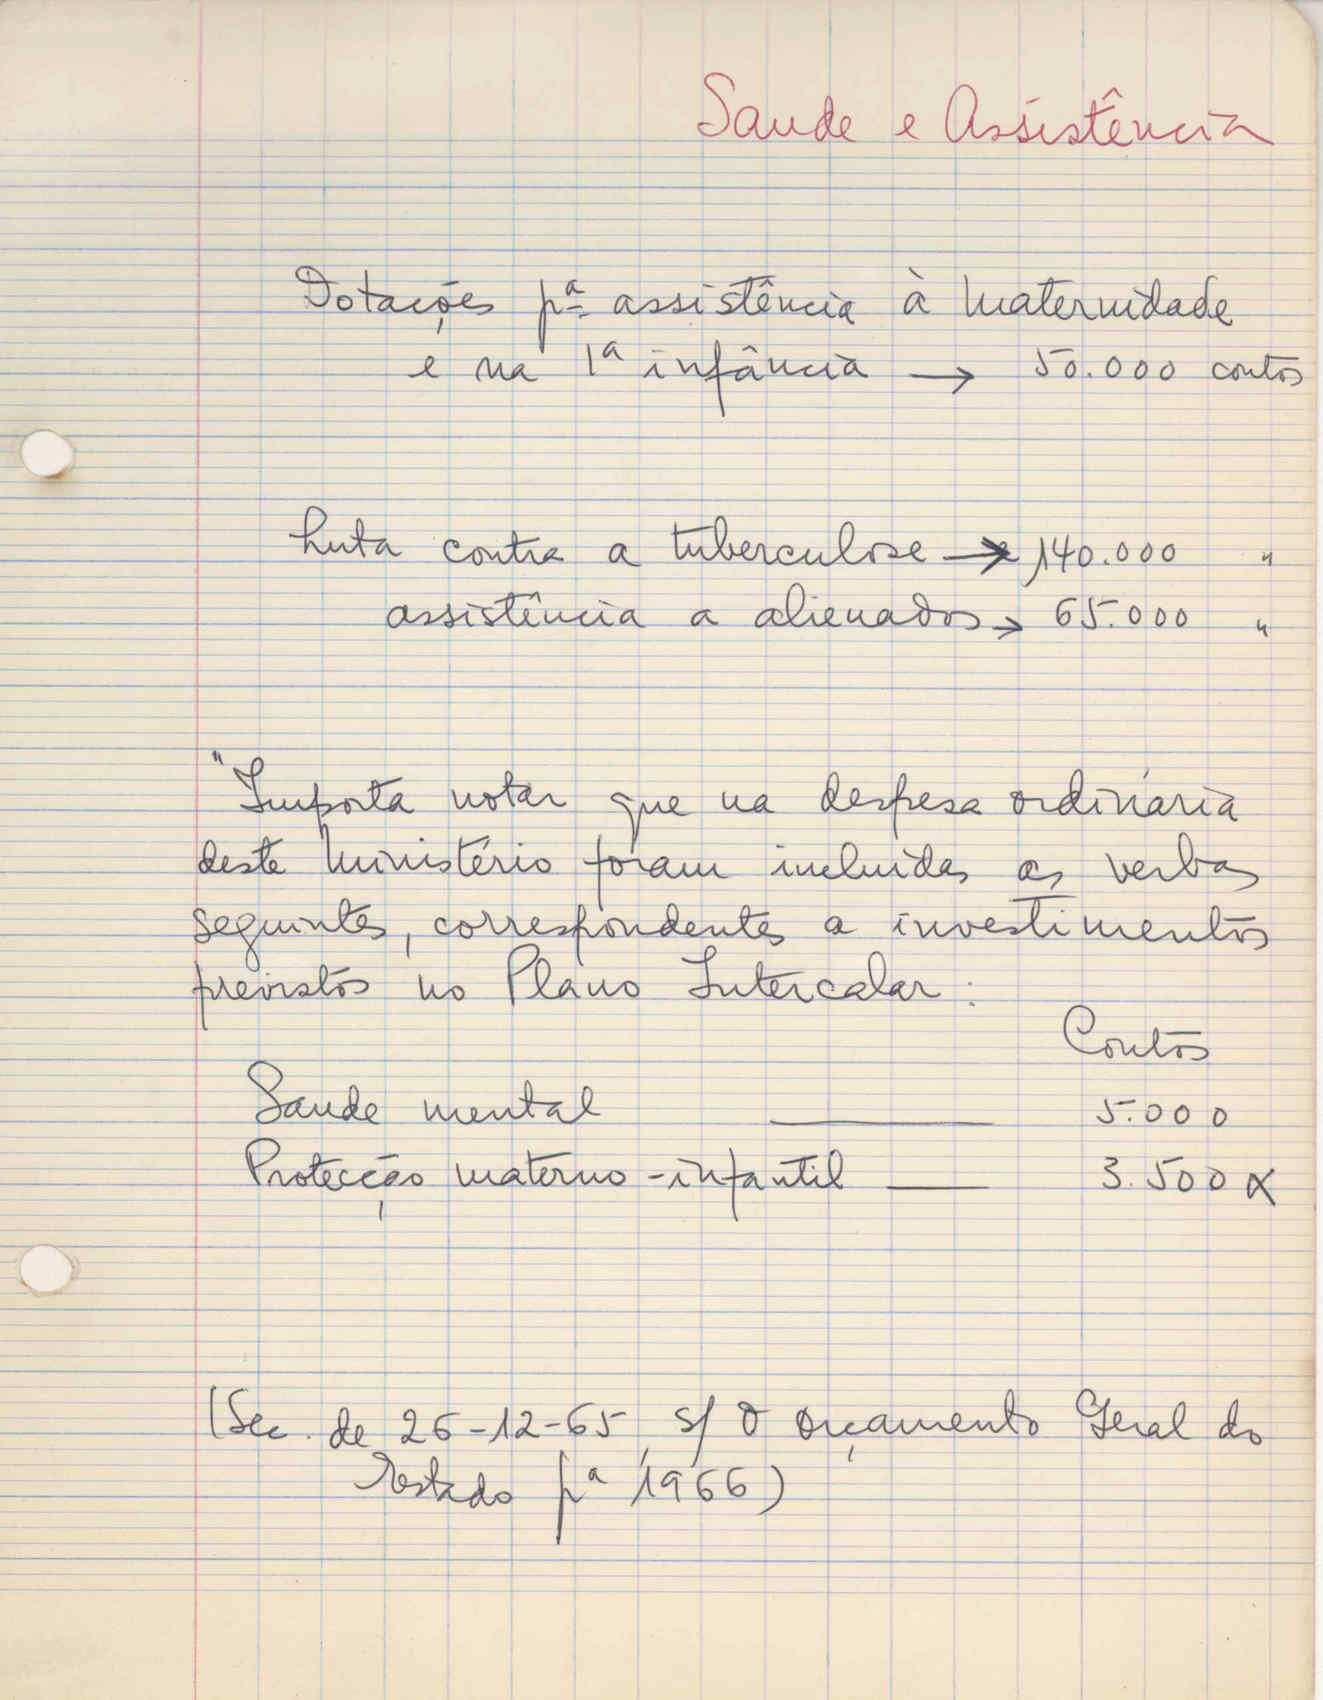 Saude e Assistência
Dotações pª assistência à maternidade
e na 1ª infância → 50.000 contos
Luta contra a tuberculose → 140.000 "
assistência a alienados → 65.000 "
"Importa notar que na despesa ordinária
deste Ministério foram incluídas as verbas
seguintes, correspondentes a investimentos
previstos no Plano Intercalar:
Contos
Saude mental ——— 5.000
Protecção materno-infantil —— 3.500
(Sec. de 26-12-65, s/ o Orçamento Geral do
Estado pª 1966)